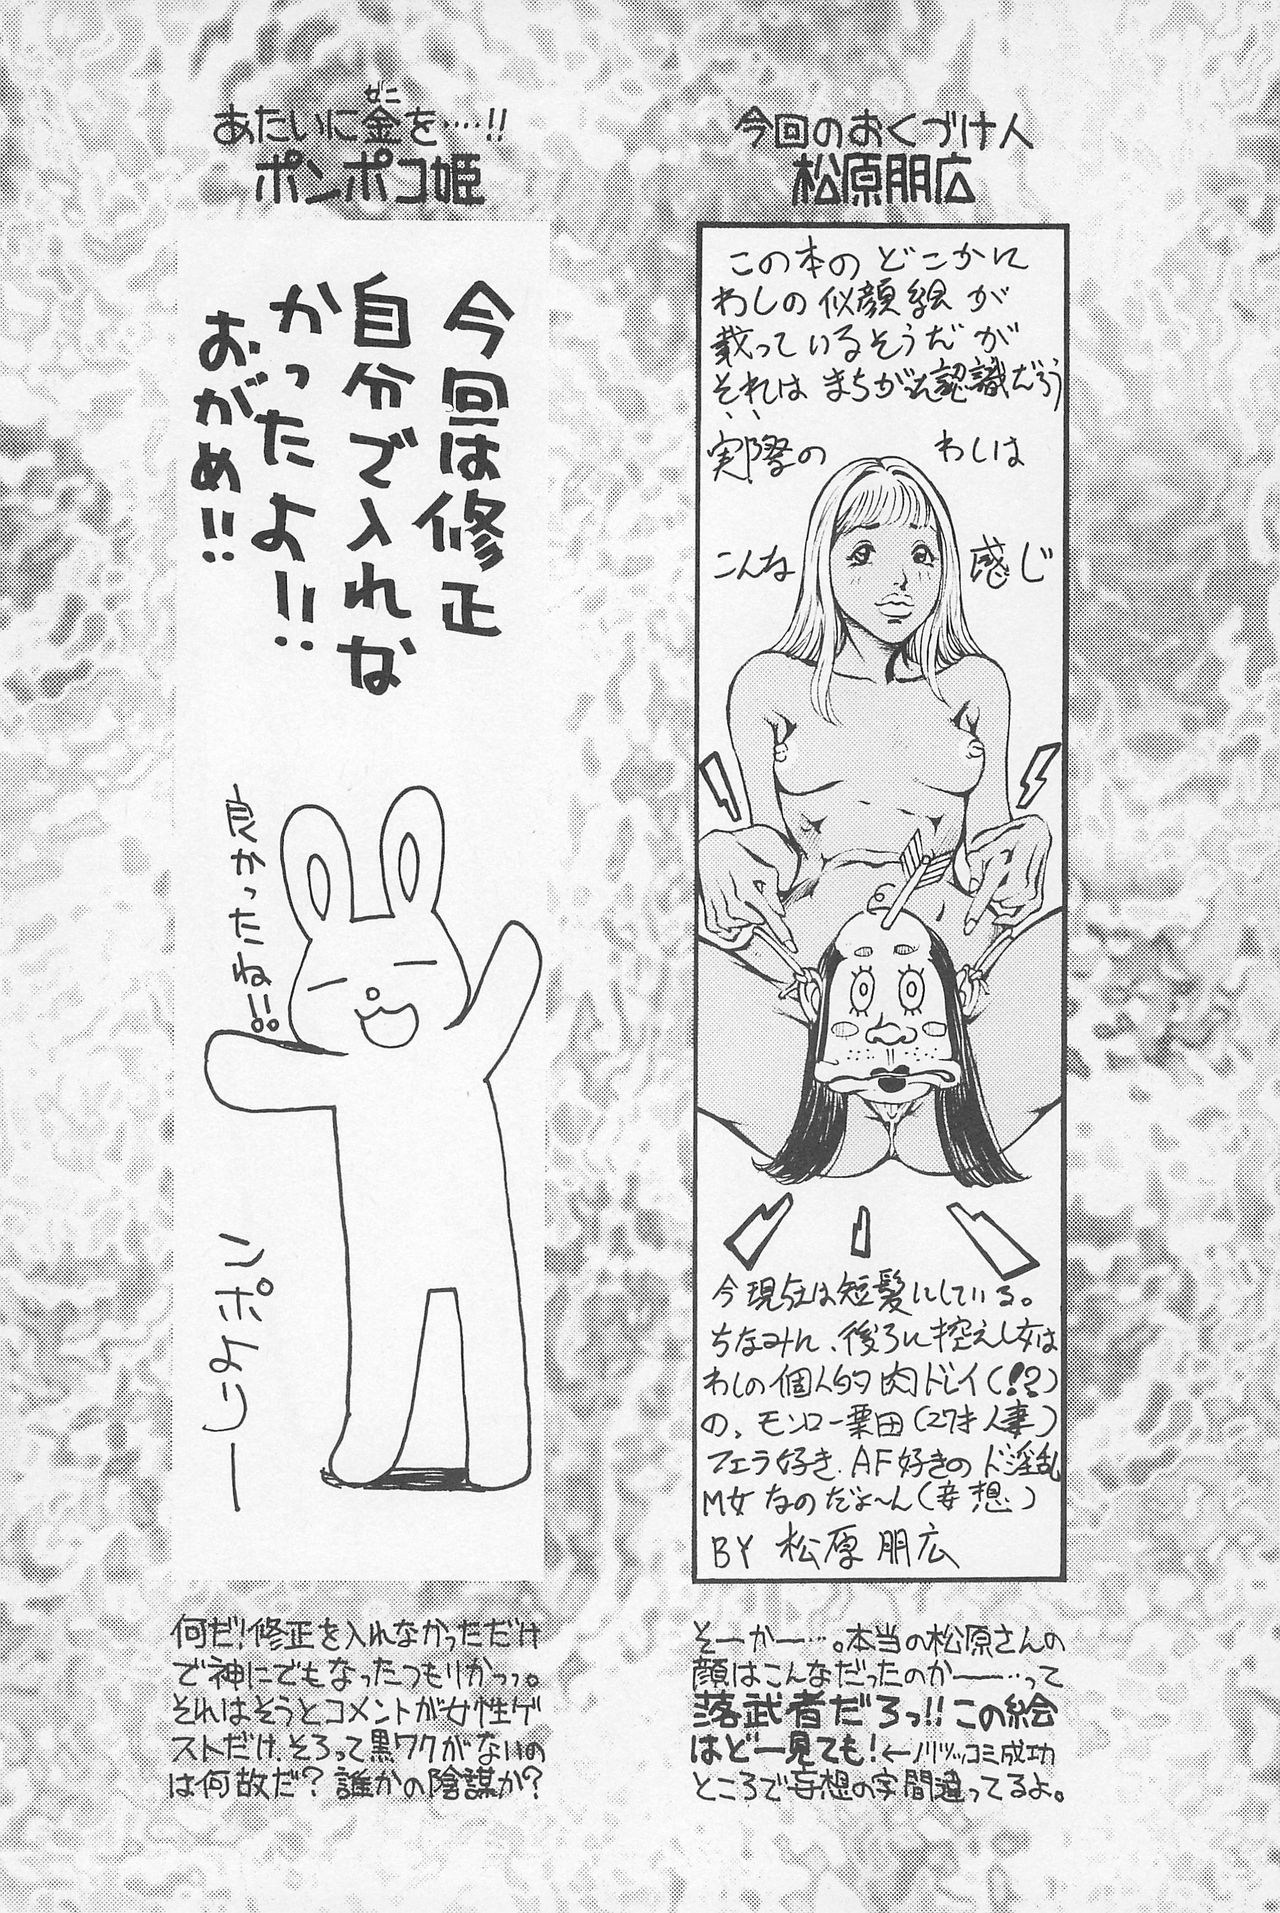 今回のおくづけ人
松原朋広
この本のどこかに
わしの似顔絵が
載っているそうだが
それはまちがえ認識だろう
実際のわしは
こんな感じ
今現在は短髪にしている。
ちなみに、後ろに控えし女は
わしの個人的肉ドレイ(!?)
の、モンロー栗田(27才人妻)
フェラ好き、AF好きのド淫乱
M女なのだよ〜ん(妄想)
BY 松原朋広
そーかー…。本当の松原さんの
顔はこんなだったのかー…って
落武者だろっ!!この絵
はどー見ても!←ノリツッコミ成功
ところで妄想の字間違ってるよ。
ぜニ
あたいに金を‥‥!!
ポンポコ姫
今回は修正
自分で入れな
かったよ!!
おがめ!!
良かったね!!
ンポよりー
何だ!修正を入れなかっただけ
で神にでもなったつもりかっっ。
それはそうとコメントが女性ゲ
ストだけ、そろって黒ワクがないの
は何故だ?誰かの陰謀か?